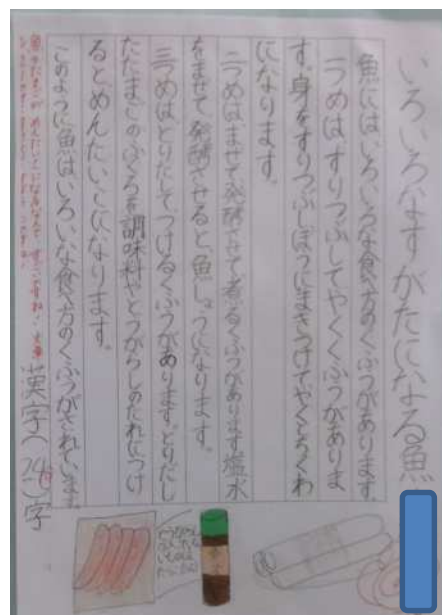 いろいろなすがたになる魚
魚にはいろいろな食べ方のくふうがあります
一つめはすりつぶしてやくくふうがありま
す。身をすりつぶしぼうにまきつけてやくとちくわ
になります。
二つめはまぜて発酵させて煮るくふうがあります塩水
をまぜて発酵させると、魚しょうになります。
三つめはとりだしてつけるくふうがあります。とりだし
たたまごのふくろを調味料やとうがらしのたれにつけ
るとめんたいこになります。
このように魚はいろいな食べ方のくふうがされています。
魚のたまごがめんたいこになるなんて、すごいですね!
漢字(24こ)字